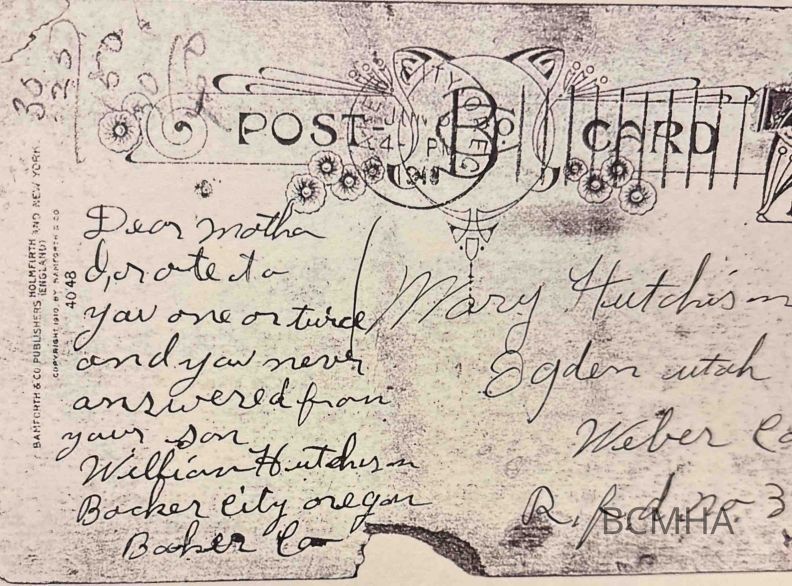 POST CARD
JUN
4 - PM
Dear Motha
I, rote to
yau one or twice
and you never
answered from
your son
William Hutchison
Backer City oregon
Backer Co
Mary Hutchison
Ogden utah
Weber Co
R. f. d. no 3
BAMFORTH & CO. PUBLISHERS HOLMFIRTH AND NEW YORK
(ENGLAND)
COPYRIGHT 1910, BY BAMFORTH & CO
4048
30
BCMHA